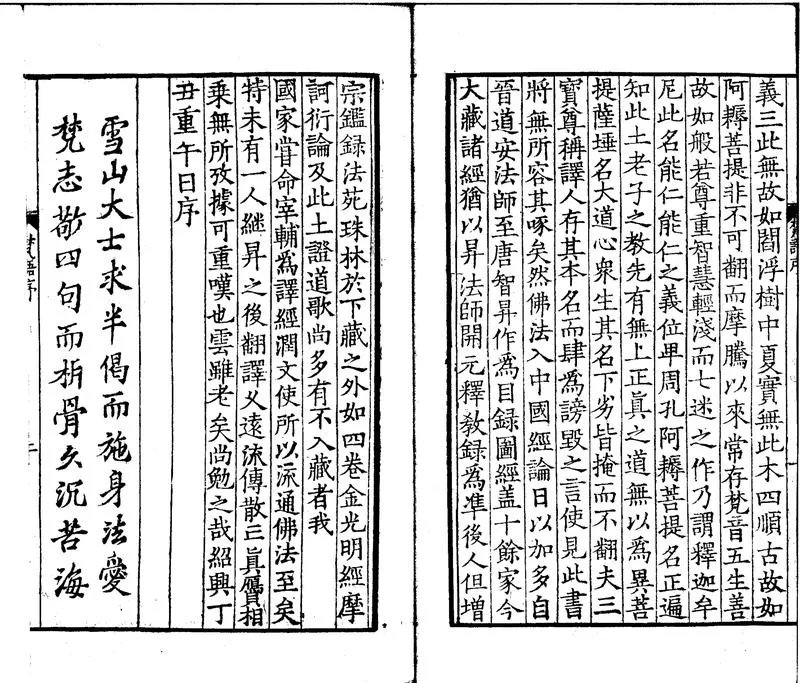 義三此無故如閻浮樹中夏實無此木四順古故如
阿耨菩提非不可翻而摩騰以來常存梵音五生善
故如般若尊重智慧輕淺而七迷之作乃謂釋迦牟
尼此名能仁能仁之義位卑周孔阿耨菩提名正遍
知此土老子之教先有無上正真之道無以爲異菩
提薩埵名大道心衆生其名下劣皆掩而不翻夫三
寶尊稱譯人存其本名而肆爲謗毀之言使見此書
將無所容其啄矣然佛法入中國經論日以加多自
晉道安法師至唐智昇作爲目録圖經盖十餘家今
大藏諸經猶以昇法師開元釋教録爲準後人但增
宗鑑録法苑珠林於下藏之外如四卷金光明經摩
訶衍論及此土證道歌尚多有不入藏者我
國家甞命宰輔爲譯經潤文使所以流通佛法至矣
特未有一人継昇之後翻譯乂遠流傳散亡真贋相
乗無所攷據可重嘆也雲雖老矣尚勉之哉紹興丁
丑重午日序
雪山大士求半偈而施身法愛
梵志敬四句而析骨久沉苦海
梵語序